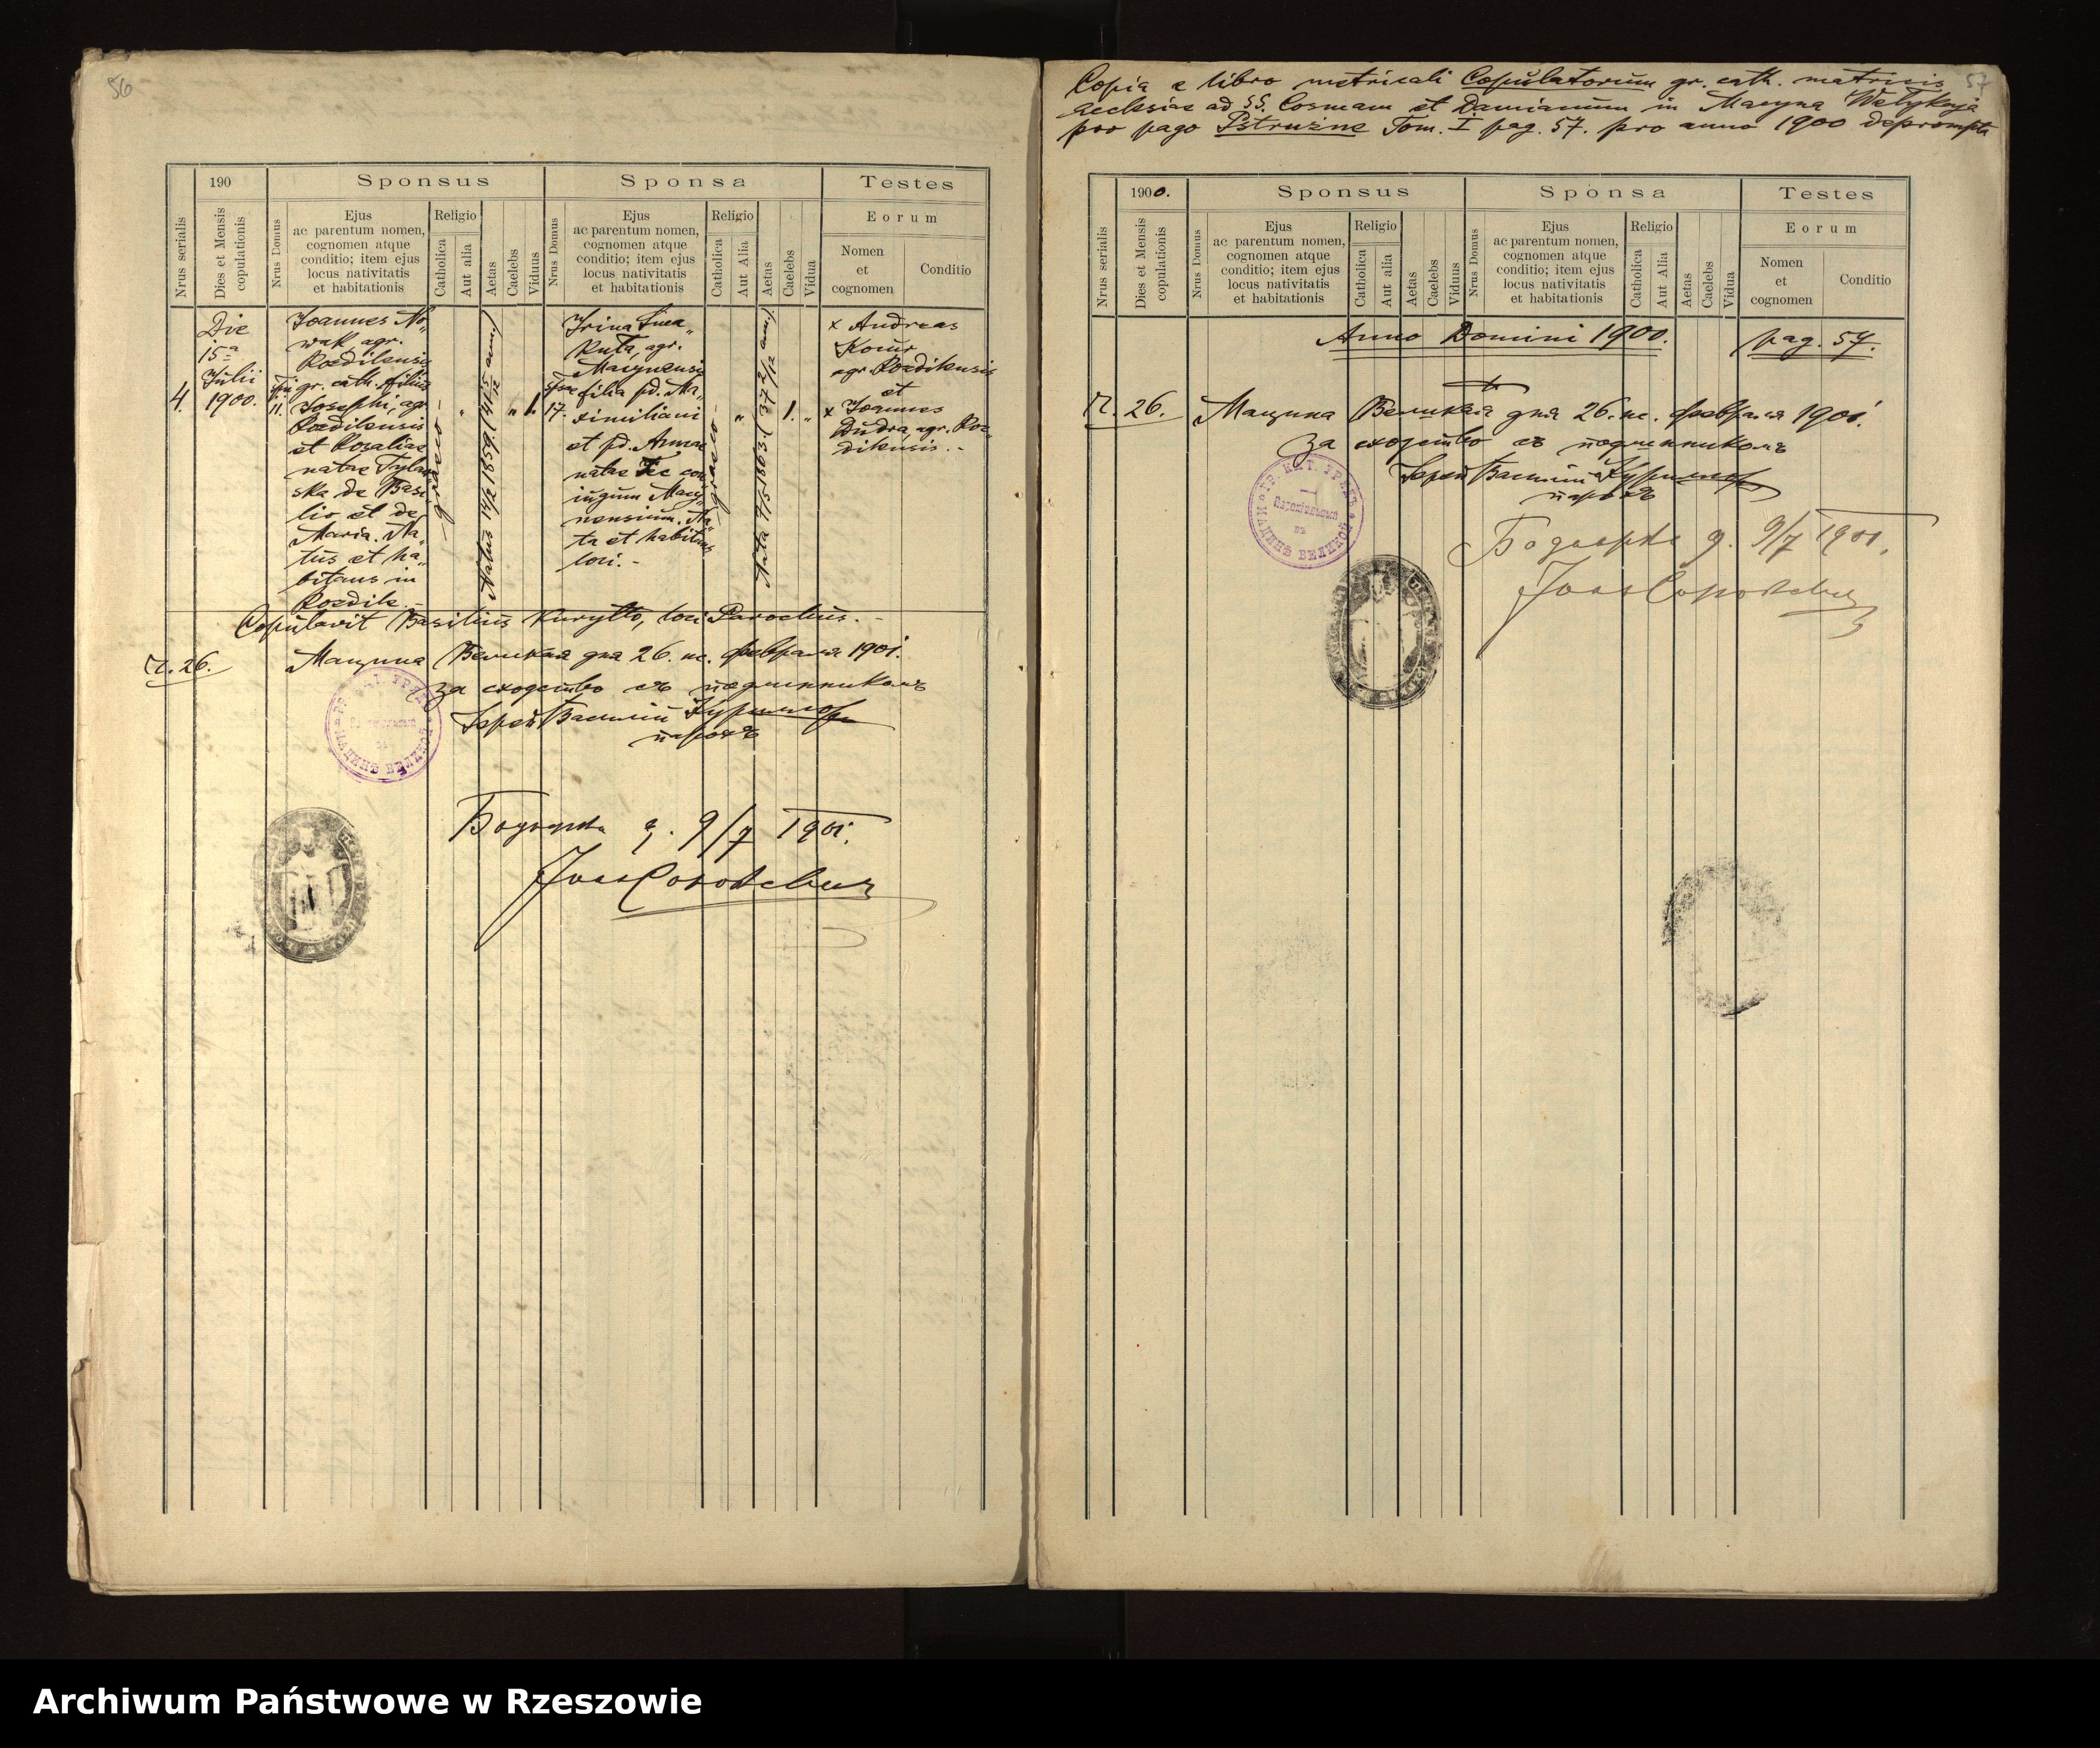 56
190
Sponsus
Sponsa
Testes
Nrus serialis
Dies et Mensis copulationis
Nrus Domus
Ejus
ac parentum nomen,
cognomen atque
conditio; item ejus
locus nativitatis
et habitationis
Religio
Catholica
Aut alia
Aetas
Caelebs
Viduus
Nrus Domus
Ejus
ac parentum nomen,
cognomen atque
conditio; item ejus
locus nativitatis
et habitationis
Religio
Catholica
Aut Alia
Aetas
Caelebs
Vidua
Eorum
Nomen
et
cognomen
Conditio
4.
Die
15ª
Julii
1900.
11.
Joannes No„
wak, agr.
Rozdilensis
gr. cath. filius
Josephi, agr.
Rozdilensis
et Rosaliae
natae Tylaw„
ska de Basi„
lio et de
Maria. Na„
tus et ha„
bitans in
Rozdile.-
graeco
Natus 14/2 1859. (41 5/12 ann.)
1
17.
Irina
Kuta, agr.
Macynensis
filia pd. Ma„
ximiliani
et pd. Annae
natae Fec con„
iugum Macy„
nensium. Na„
ta et habitans
loci.-
graeco
Nata 4/5 1863. (37 2/12 ann.)
1.
x Andreas
Kocur
agr. Rozdilensis
et
x Joannes
Dudra, agr. Roz„
dilensis.-
Copulavit Basilius Kuryłło, loci Parochus.-
Ч. 26.
Мацина Великая дня 26. н. февраля 1901.
За сходство съ подлинникомъ
Іерей Василій Курилло
парохъ
ГР. КАТ. УРЯДЪ
МАЦИНѢ ВЕЛИКОЙ
Бодноръка д. 9/7 1901.
57
Copia e libro metricali Copulatorum gr. cath. matricis
ecclesiae ad SS. Cosmam et Damianum in Macyna Wełykaja
pro pago Pstrużne Tom. I pag. 57. pro anno 1900 deprompta
1900.
Sponsus
Sponsa
Testes
Nrus serialis
Dies et Mensis copulationis
Nrus Domus
Ejus
ac parentum nomen,
cognomen atque
conditio; item ejus
locus nativitatis
et habitationis
Religio
Catholica
Aut alia
Aetas
Caelebs
Viduus
Nrus Domus
Ejus
ac parentum nomen,
cognomen atque
conditio; item ejus
locus nativitatis
et habitationis
Religio
Catholica
Aut Alia
Aetas
Caelebs
Vidua
Eorum
Nomen
et
cognomen
Conditio
Anno Domini 1900.
pag. 57.
Ч. 26.
Мацина Великая дня 26. н. февраля 1901.
За сходство съ подлинникомъ
Іерей Василій Курилло
парохъ
ГР. КАТ. УРЯДЪ
Парохіяльный
въ
МАЦИНѢ ВЕЛИКОЙ
д. 9/7 1901.
Archiwum Państwowe w Rzeszowie